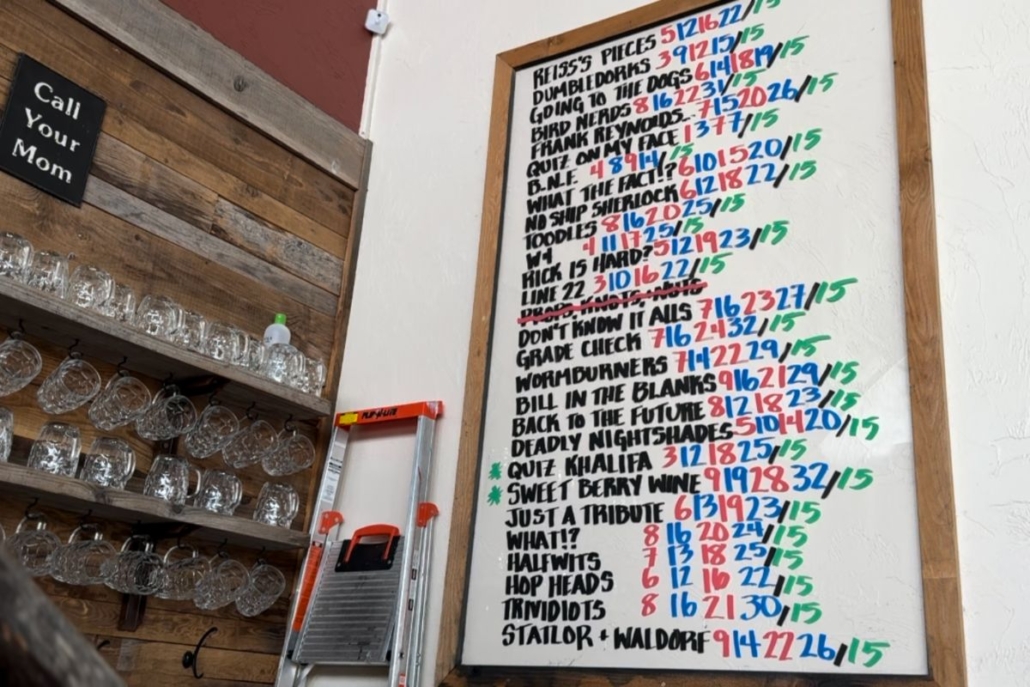 Call
Your
Mom
REISS'S PIECES 5 12 16 22/15
DUMBLEDORKS 3 9 12 15/15
GOING TO THE DOGS 6 14 18 19/15
BIRD NERDS 8 16 22 31/15
FRANK REYNOLDS... 7 15 20 26/15
QUIZ ON MY FACE 1 3 7 7/15
B.N.E. 4 8 9 14/15
WHAT THE FACT!? 6 10 15 20/15
NO SHIP SHERLOCK 6 12 18 22/15
TOODLES 8 16 20 25/15
W4 4 11 17 25/15
RICK IS HARD? 5 12 19 23/15
LINE 22 3 10 16 22/15
PROPS, KNOTS, + NUTS
DON'T KNOW IT ALLS 7 16 23 27/15
GRADE CHECK 7 16 24 32/15
WORMBURNERS 7 14 22 29/15
BILL IN THE BLANKS 9 16 21 29/15
BACK TO THE FUTURE 8 12 18 23/15
DEADLY NIGHTSHADES 5 10 14 20/15
* QUIZ KHALIFA 3 12 18 25/15
* SWEET BERRY WINE 9 19 28 32/15
JUST A TRIBUTE 6 13 19 23/15
WHAT!? 8 16 20 24/15
HALFWITS 7 13 18 25/15
HOP HEADS 6 12 16 22/15
TRIVIDIOTS 8 16 21 30/15
STATLOR + WALDORF 9 14 22 26/15